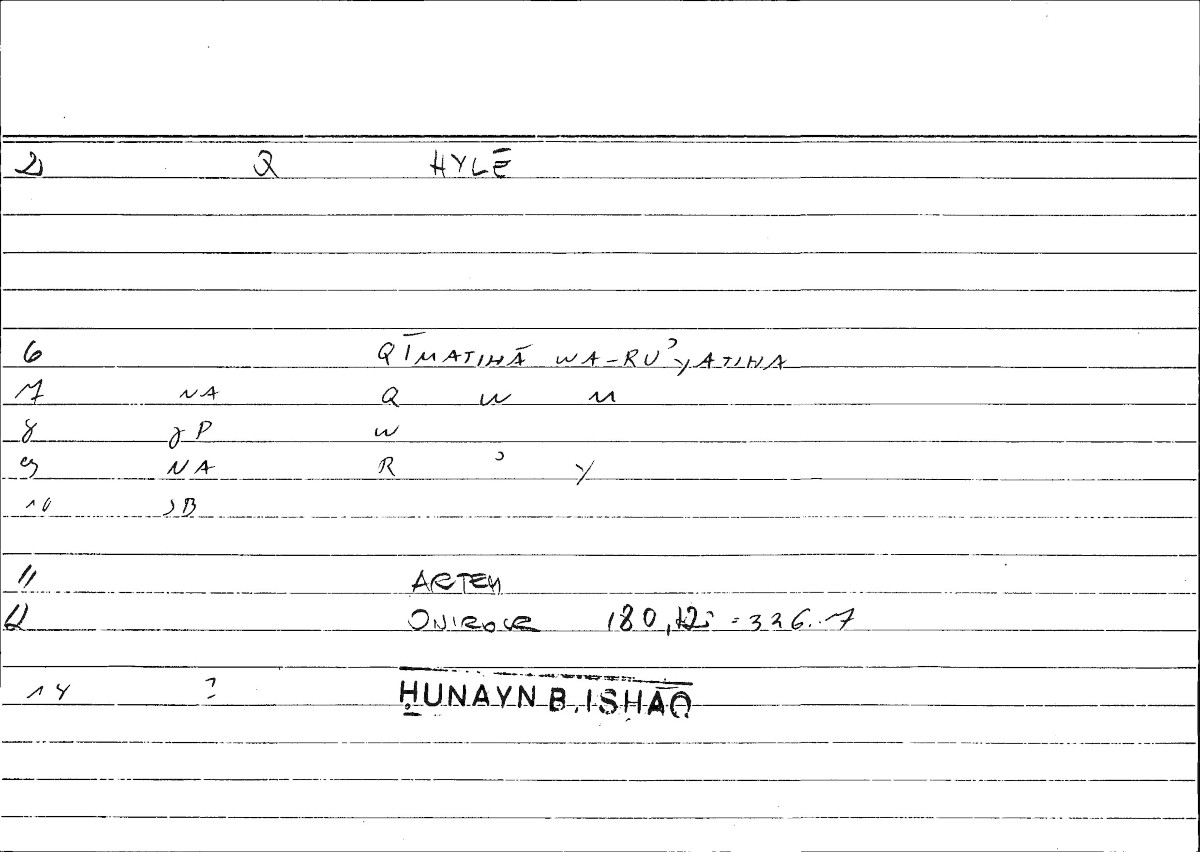 2 Q HYLĒ
6 QĪMATIHĀ WA-RUʾYATIHA
7 NA Q W M
8 γP W
9 NA R ʾ Y
10 B
11 ARTEM
12 ONIROCR 180, = 326.7
14 ? ḤUNAYN B. ISḤĀQ